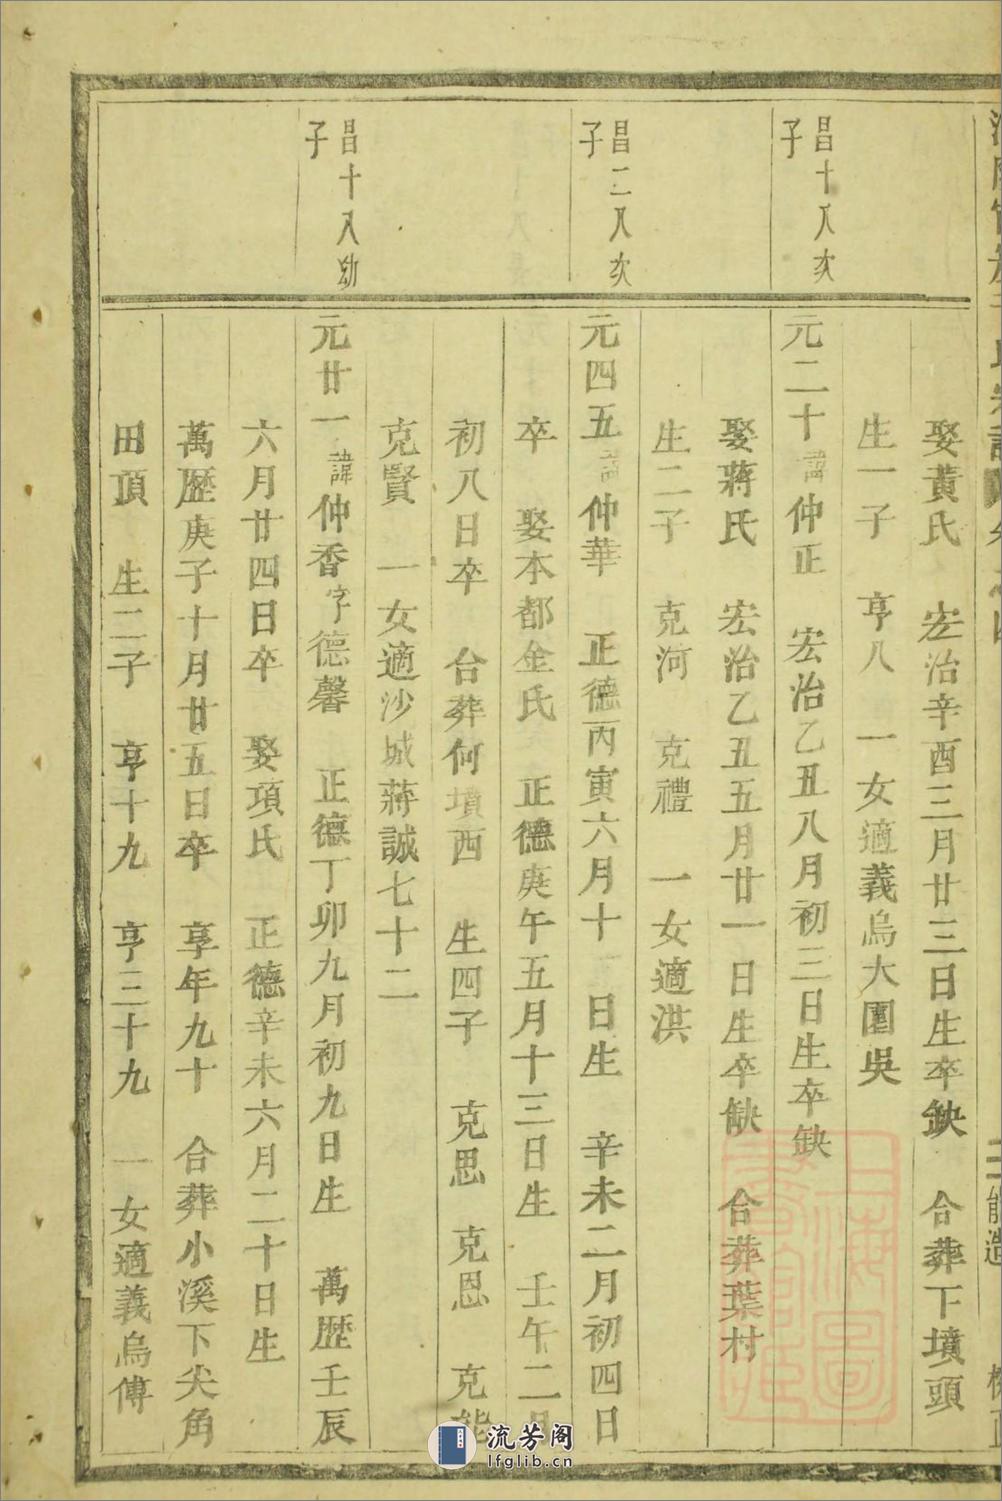 娶黃氏 宏治辛酉三月廿三日生卒缺 合葬下墳頭
生一子 亨八 一女適義烏大園吳
昌十八次子
元二十諱仲正 宏治乙丑八月初三日生卒缺
娶蔣氏 宏治乙丑五月廿一日生卒缺 合葬葉村
生二子 克河 克禮 一女適洪
昌二八次子
元四五諱仲華 正德丙寅六月十 日生 辛未二月初四日
卒 娶本都金氏 正德庚午五月十三日生 壬午二月
初八日卒 合葬何墳西 生四子 克思 克恩 克能
克賢 一女適沙城蔣誠七十二
昌十八幼子
元廿一諱仲香字德馨 正德丁卯九月初九日生 萬歷壬辰
六月廿四日卒 娶項氏 正德辛未六月二十日生
萬歷庚子十月廿五日卒 享年九十 合葬小溪下尖角
田頂 生二子 亨十九 亨三十九 一女適義烏傅
上海圖書館藏
流芳阁
lfglib.cn